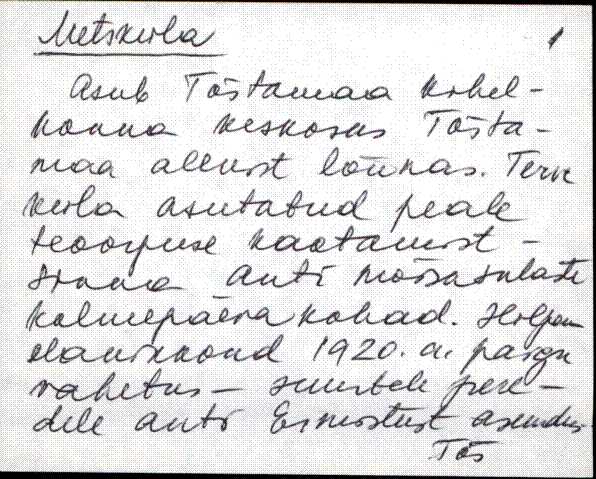 Metsküla 1
Asub Tõstamaa kihel-
konna keskosas Tõsta-
maa alevist lõunas. Terve
küla asutatud peale
teoorjuse kaotamist -
sinna anti mõisasulaste
kolmepäeva kohad.
elanikkond 1920. a. paigu
vahetus - suurtele pere-
dele anti Ermistust asendus-
Tõs